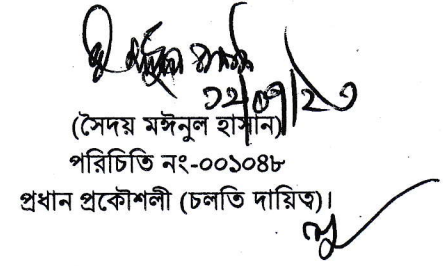 (সৈদয় মঈনুল হাসান)
পরিচিতি নং-০০১০৪৮
প্রধান প্রকৌশলী (চলতি দায়িত্ব)।